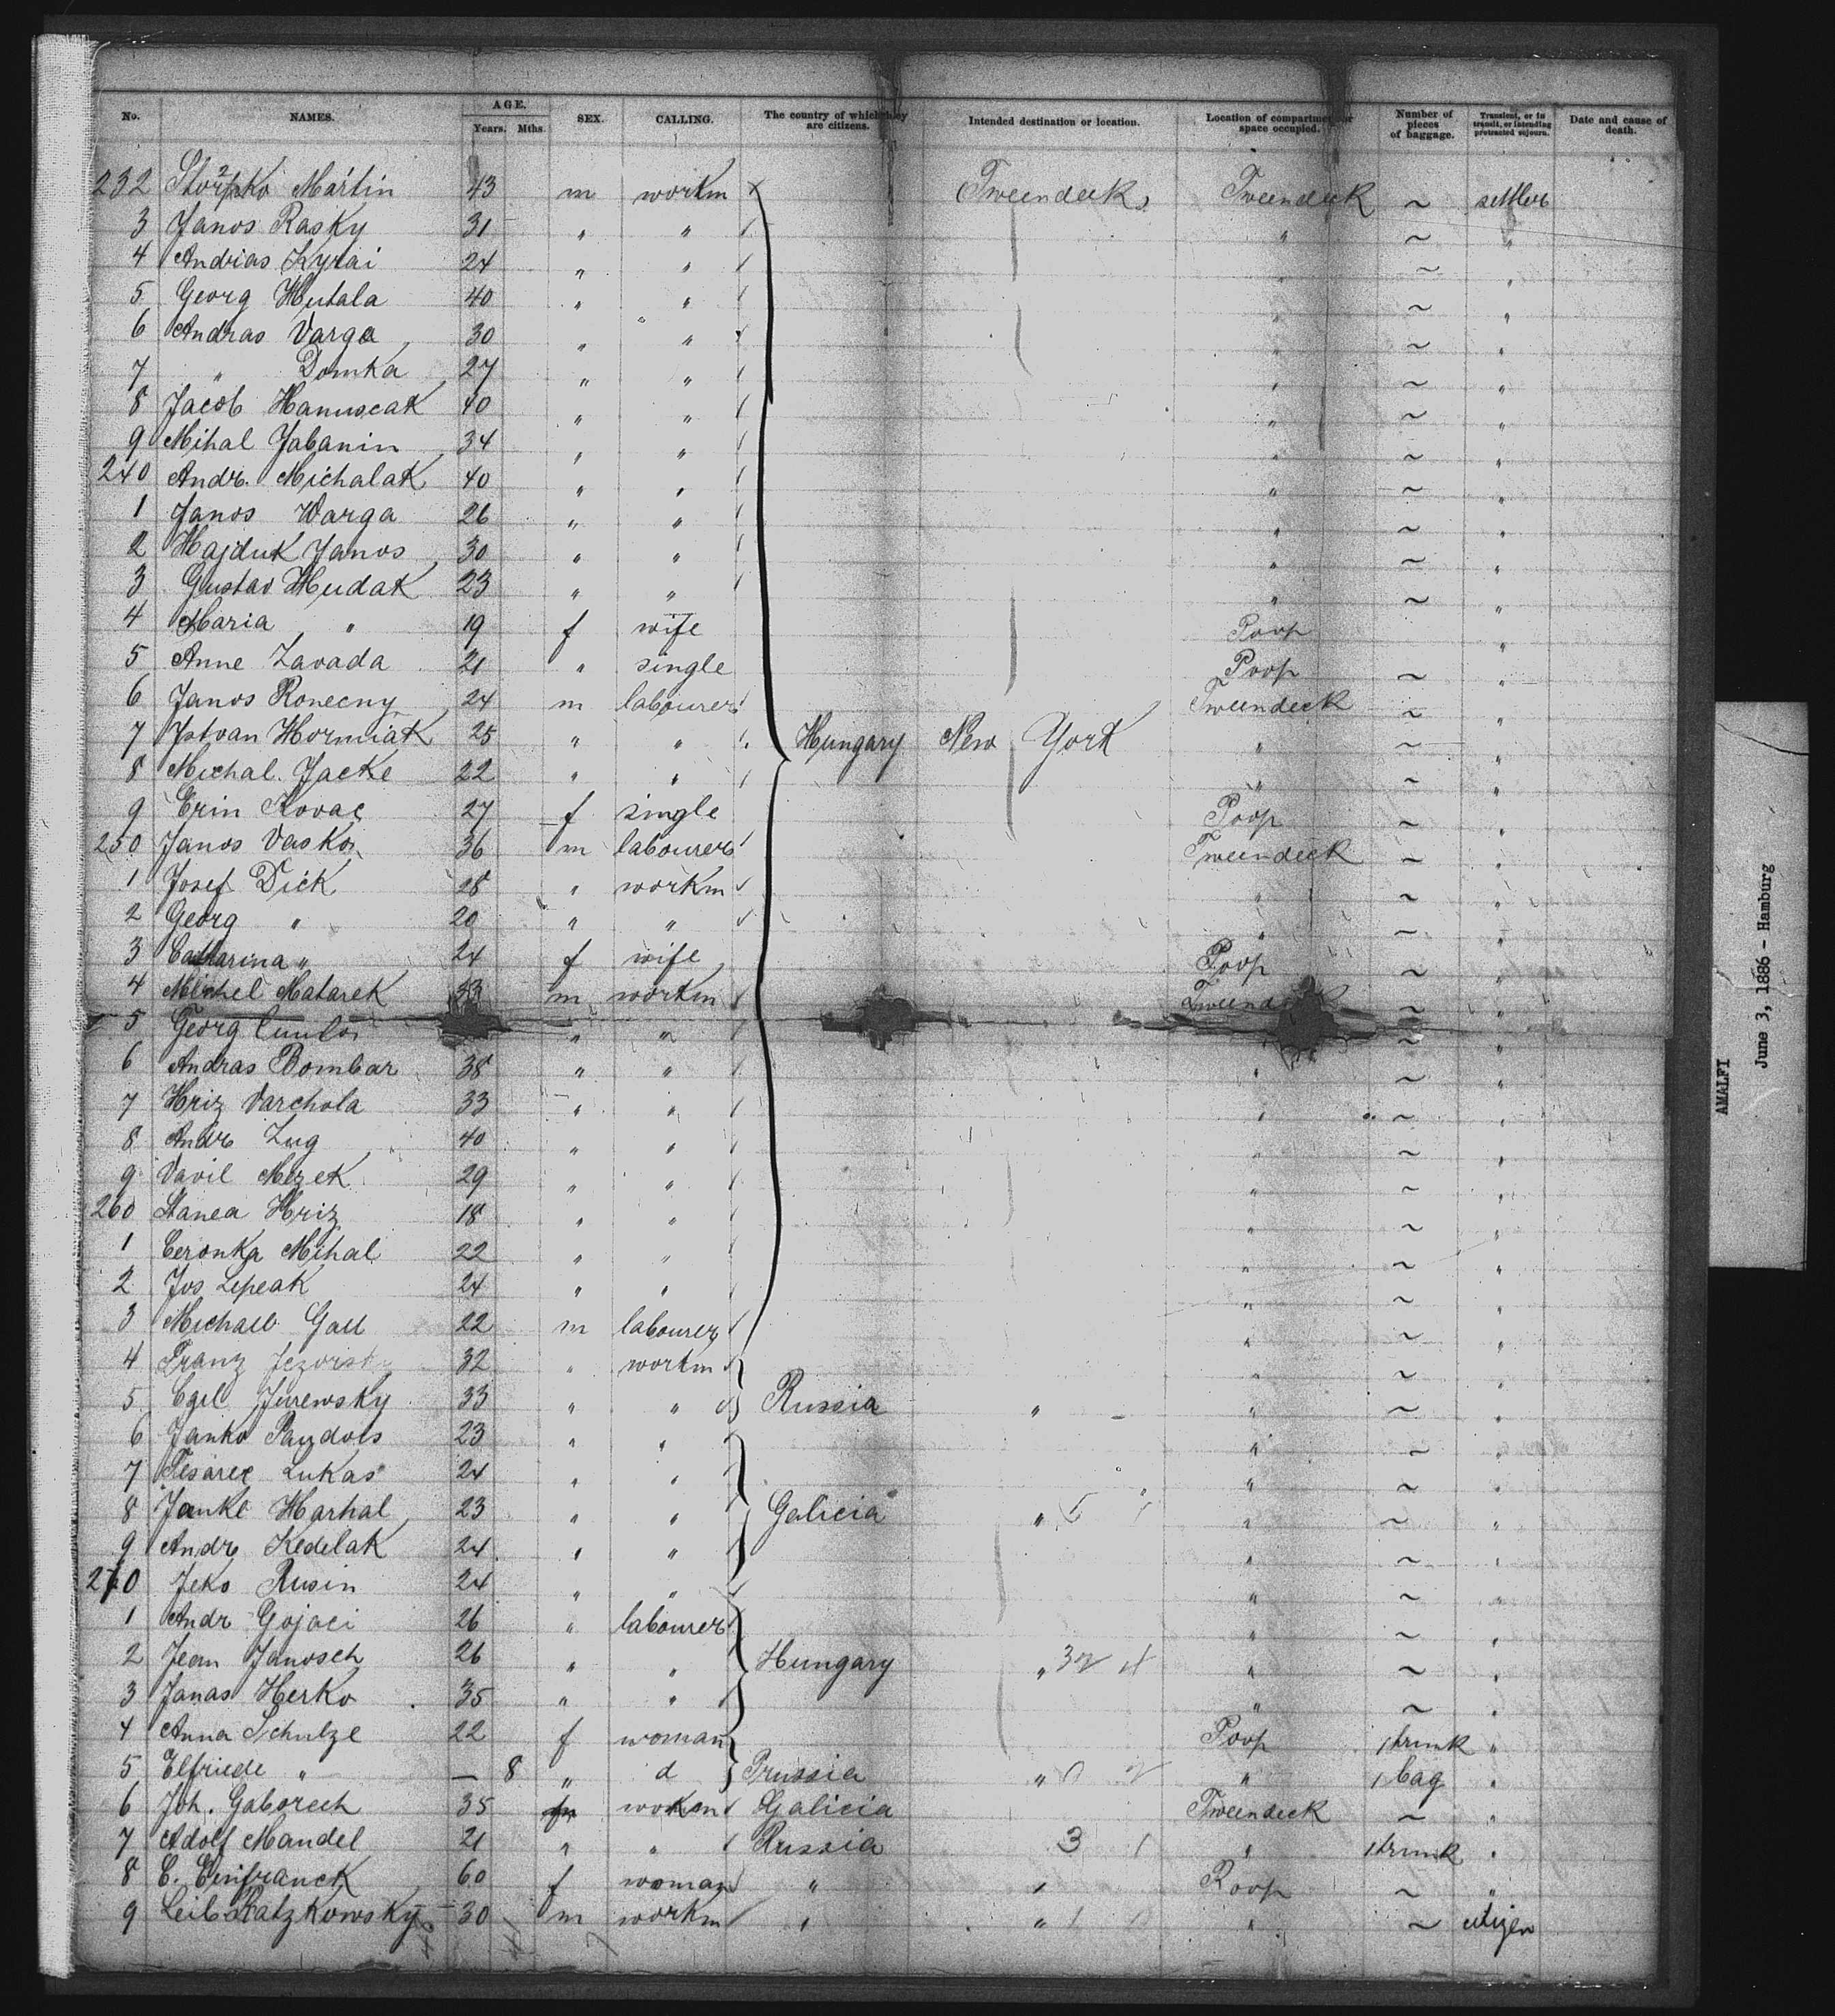 No. NAMES. AGE. Years. Mths. SEX. CALLING. The country of which they are citizens. Intended destination or location. Location of compartment or space occupied. Number of pieces of baggage. Transient, or in transit, or intending protracted sojourn. Date and cause of death.
232 Martin 43 m workm Tweendeck Tweendeck ~ settler
3 Janos Rasky 31 " " " ~ "
4 Andrias 24 " " " ~ "
5 Georg Hutala 40 " " " ~ "
6 Andras Varga 30 " " " ~ "
7 " Domka 27 " " " ~ "
8 Jacob Hanuscak 40 " " " ~ "
9 Mihal Jabanin 34 " " " ~ "
240 Andr. Michalak 40 " " " ~ "
1 Janos Warga 26 " " " ~ "
2 Hajduk Janos 30 " " " ~ "
3 Gustav Hudak 23 " " " ~ "
4 Maria " 19 f wife Poop "
5 Anne Zavada 21 " single Poop ~ "
6 Janos Ronecny 24 m labourer Tweendeck ~ "
7 Istvan Hormiak 25 " " Hungary New York " ~ "
8 Michal Jacke 22 " " " ~ "
9 Erin Kovac 27 f single Poop ~ "
250 Janos Vasko 36 m labourer Tweendeck ~ "
1 Josef Dick 28 " workm " ~ "
2 Georg " 20 " " " ~ "
3 Catharina " 24 f wife Poop ~ "
4 Michel Matarek 33 m workm ~ "
5 Georg " " ~ "
6 Andras Bombar 38 " " " ~ "
7 Hriz Varchola 33 " " " ~ "
8 Andr Zug 40 " " " ~ "
9 Vavil Mezek 29 " " " ~ "
260 Hanea Hriz 18 " " " ~ "
1 Ceronka Mihal 22 " " " ~ "
2 Jos Lepeak 24 " " " ~ "
3 Michael Gall 22 m labourer " ~ "
4 Franz 32 " workm " ~ "
5 Jurewsky 33 " " Russia " " ~ "
6 Janko 23 " " " ~ "
7 Lukas 24 " " " ~ "
8 Janke Harhal 23 " " Galicia " " ~ "
9 Andr Kedelak 24 " " " ~ "
270 Jeko Rusin 24 " " " ~ "
1 Andr Gojaci 26 " labourer " ~ "
2 Jean Janosch 26 " " Hungary " " ~ "
3 Janas Herko 35 " " " ~ "
4 Anna Schulze 22 f woman Poop 1 trunk "
5 Elfriede " — 8 " d Prussia " " 1 bag "
6 Joh. Gaborech 35 m Galicia Tweendeck ~ "
7 Adolf Mandel 21 " " Russia 3 1 " 1 trunk "
8 C. Einfranck 60 f woman " " Poop ~ "
9 Leib Katzkowsky 30 m workm " " " ~ citizen
AMALFI
June 3, 1886 - Hamburg